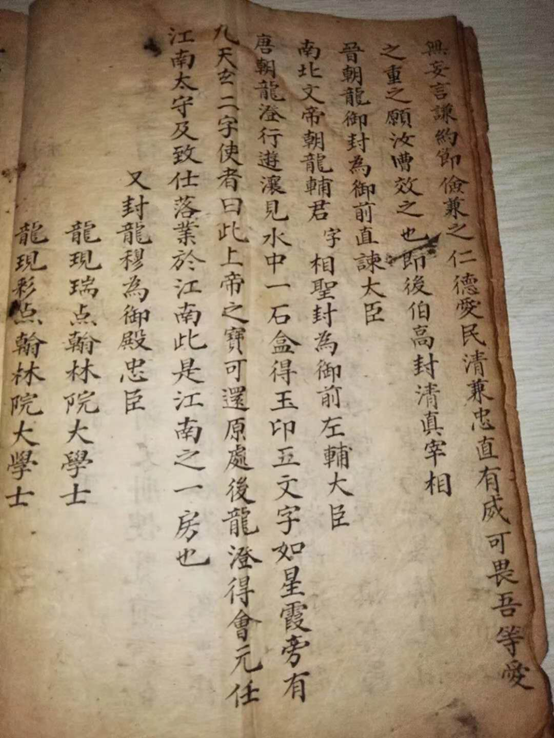 無妄言謙約節儉兼之仁德愛民清兼忠直有威可畏吾等愛
之重之願汝曹效之也即後伯高封清真宰相
晉朝龍御封為御前直諫大臣
南北文帝朝龍輔君字相聖封為御前左輔大臣
唐朝龍澄行遊瀼見水中一石盒得玉印五文字如星霞旁有
九天玄二字使者曰此上帝之寶可還原處後龍澄得會元任
江南太守及致仕落業於江南此是江南之一房也
又封龍穆為御殿忠臣
龍現瑞点翰林院大學士
龍現彩点翰林院大學士